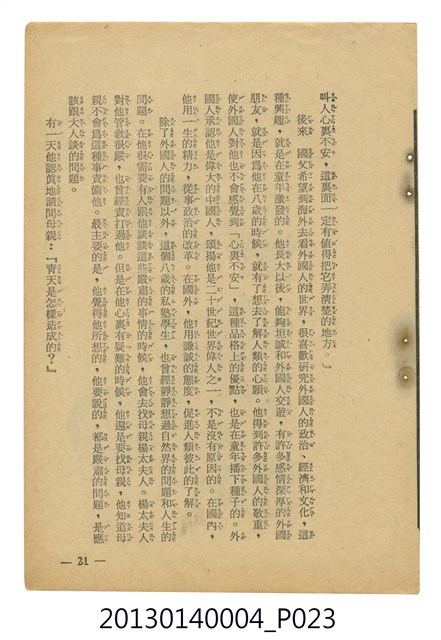 叫人心裏不安，這裏面一定有值得把它弄清楚的地方。」
後來　國父希望到海外去看外國人的世界，很喜歡研究外國人的政治、經濟和文化，這
種興趣，就是在童年激發的。他長大以後，他夠坦誠和外國人交遊，有許多感情深厚的外國
朋友，就是因爲他在八歲的時候，就有了想去了解人類的心願。他得到許多外國人的敬重，
使外國人對他也不會感覺到「心裏不安」，這種品格上的優點，也是在童年播下種子的。外
國人承認他是偉大的中國人，頌揚他是二十世紀世界偉人之一，不是沒有原因的。在國內，
他用一生的精力，從事政治的改革。在國外，他用謙誠的態度，促進人類彼此的了解。
除了外國人的問題以外，這個八歲的私塾學生，也曾經靜靜想過自然界的問題和人生的
問題。在他很需要有人跟他談談這些嚴肅的事情的時候，他會去找母親楊太夫人。楊太夫人
對他管教很嚴，也曾經責打過他。但是在他心裏有疑難的時候，他還是要找母親，他知道母
親不會爲這種事責備他。最主要的是，他覺得他所想的，他要說的，都是嚴肅的問題，是應
該跟大人談的問題。
有一天他認眞地請問母親：『靑天是怎樣造成的？』
— 21 —
20130140004_P023